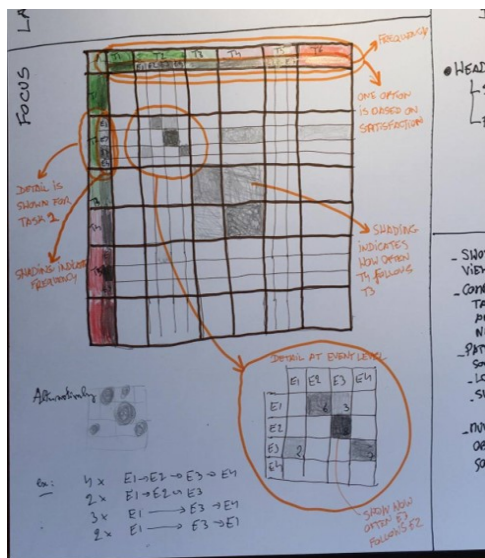 FOCUS
LA
T1 T2 T3 T4 T5 T6
FREQUENCY
HEAD
ONE OPTION
IS BASED ON
SATISFACTION
DETAIL IS
SHOWN FOR
TASK 2
SHADING INDICATES
FREQUENCY
SHADING
INDICATES
HOW OFTEN
T4 FOLLOWS
T3
DETAIL AT EVENT LEVEL
E1 E2 E3 E4
E1 6 3
E2
E3 2
E4
SHOW HOW
OFTEN E3
FOLLOWS E2
Alternatively
ex: 4x E1→E2→E3→E4
2x E1→E2→E3
3x E1→E3→E4
2x E1→E3→E1